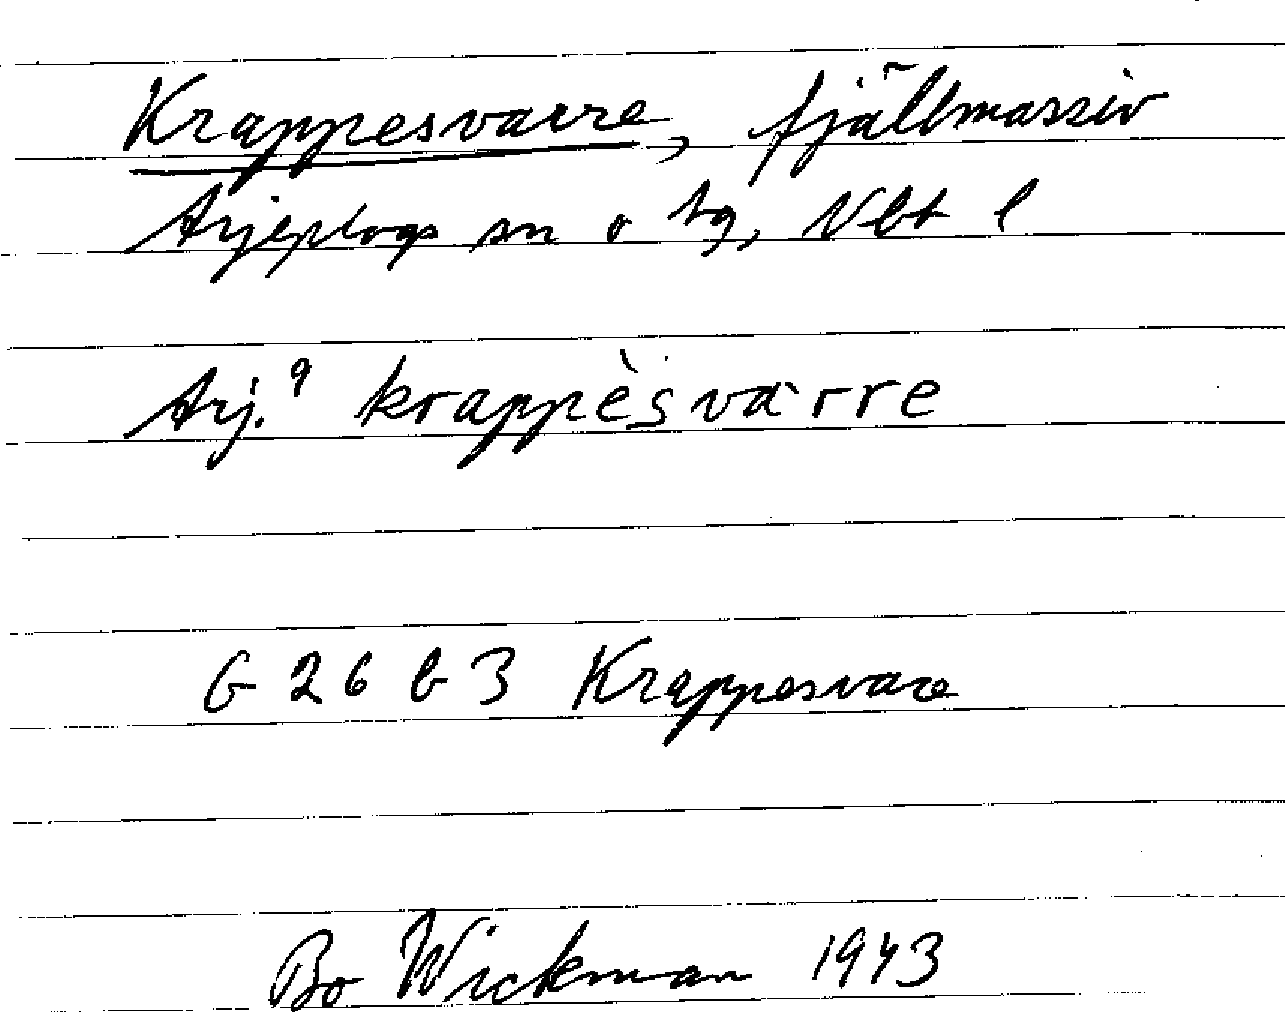 Krappesvarre, fjällmassiv
Arjeplogs sn o tg, Vbt l
Arj.9 krappèsvàrre
G 26 b 3 Krappesvare
Bo Wickman 1943